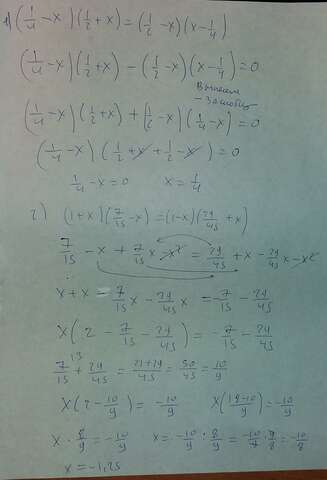 1) (1/4 - x)(1/2 + x) = (1/2 - x)(x - 1/4)
(1/4 - x)(1/2 + x) - (1/2 - x)(x - 1/4) = 0
Вынесем
- за скобку
(1/4 - x)(1/2 + x) + (1/2 - x)(1/4 - x) = 0
(1/4 - x)(1/2 + x + 1/2 - x) = 0
1/4 - x = 0 x = 1/4
2) (1+x)(7/15 - x) = (1-x)(29/45 + x)
7/15 - x + 7/15 x - x² = 29/45 + x - 29/45 x - x²
x + x - 7/15 x - 29/45 x = 7/15 - 29/45
x(2 - 7/15 - 29/45) = 7/15 - 29/45
7/15 + 29/45 = 21+29/45 = 50/45 = 10/9
x(2 - 10/9) = -10/9 x(18-10/9) = -10/9
x · 8/9 = -10/9 x = -10/9 : 8/9 = -10/9 · 9/8 = -10/8
x = -1,25